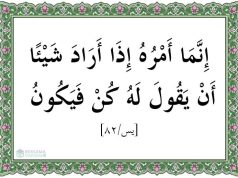 إِنَّمَا أَمْرُهُ إِذَا أَرَادَ شَيْئًا
أَنْ يَقُولَ لَهُ كُنْ فَيَكُونُ
[يس/٨٢]